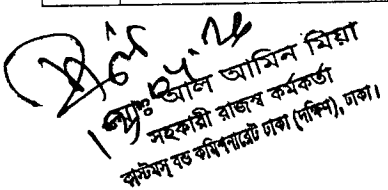 মোঃ আল আমিন মিয়া
সহকারী রাজস্ব কর্মকর্তা
কাস্টমস্ বন্ড কমিশনারেট ঢাকা (দক্ষিণ), ঢাকা।